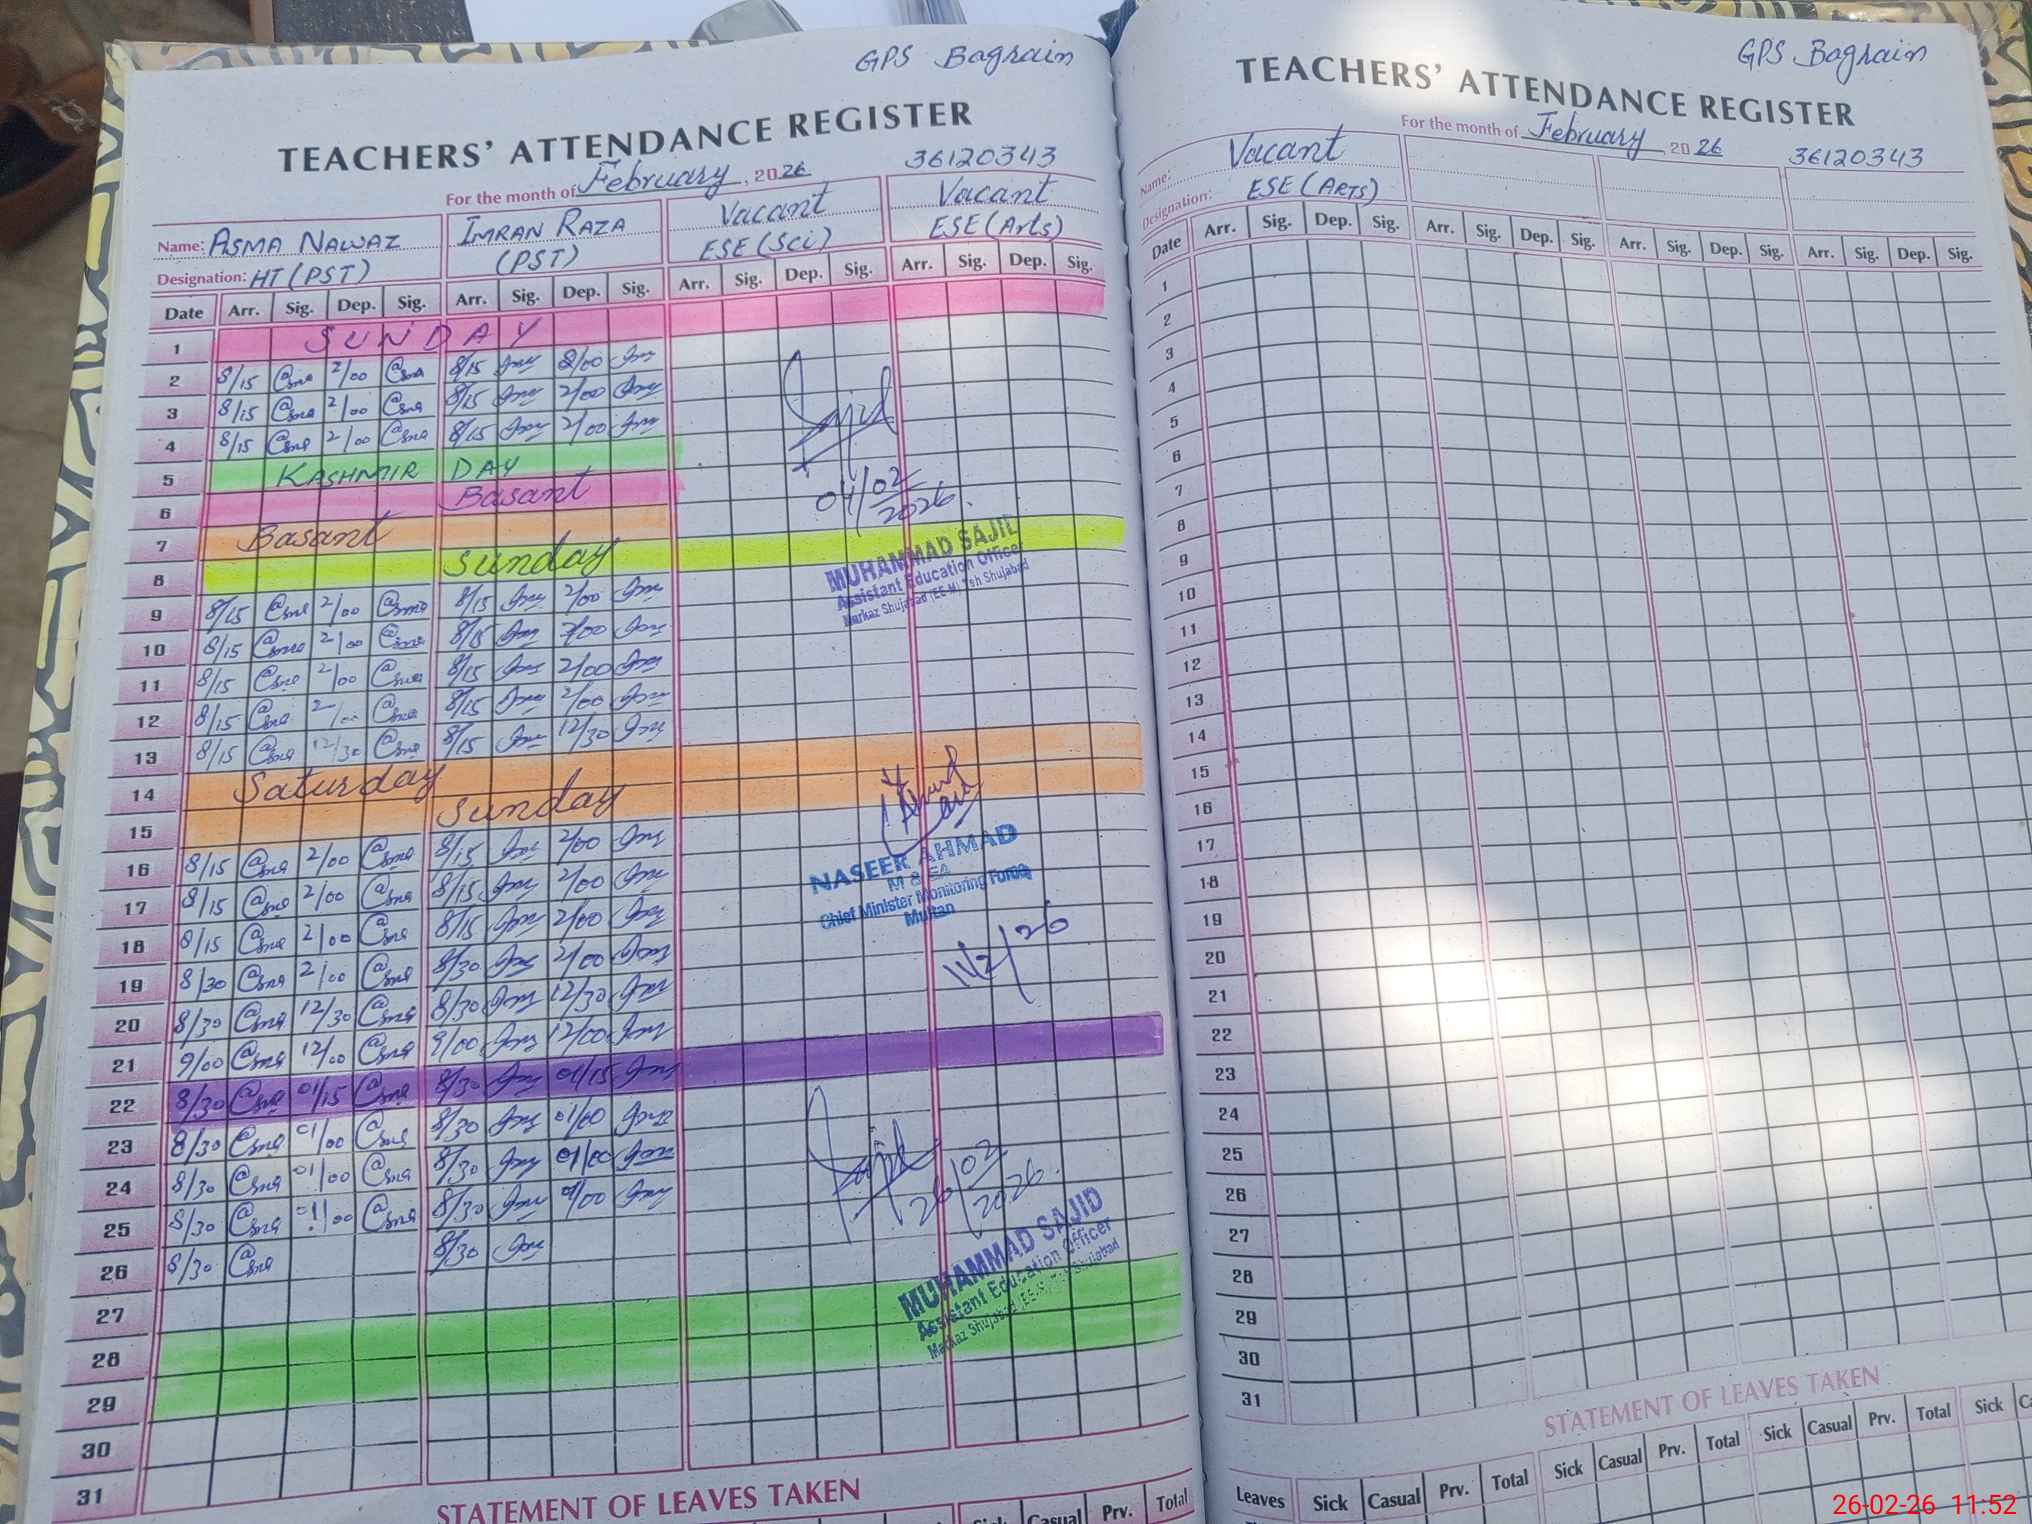 GPS Bagrain
TEACHERS' ATTENDANCE REGISTER
For the month of February, 2026 36120343
Name: ASMA NAWAZ IMRAN RAZA Vacant Vacant
Designation: HT (PST) (PST) ESE (Sci) ESE (Arts)
Date Arr. Sig. Dep. Sig. Arr. Sig. Dep. Sig. Arr. Sig. Dep. Sig. Arr. Sig. Dep. Sig.
1 SUNDAY
2 8/15 2/00 8/15 2/00
3 8/15 2/00 8/15 2/00
4 8/15 2/00 8/15 2/00
5 KASHMIR DAY
6 Basant
7 Basant
8 Sunday
9 8/15 2/00 8/15 2/00
10 8/15 2/00 8/15 2/00
11 8/15 2/00 8/15 2/00
12 8/15 2/00 8/15 2/00
13 8/15 12/30 8/15 12/30
14 Saturday
15 Sunday
16 8/15 2/00 8/15 2/00
17 8/15 2/00 8/15 2/00
18 8/15 2/00 8/15 2/00
19 8/30 2/00 8/30 2/00
20 8/30 12/30 8/30 12/30
21 9/00 12/00 9/00 12/00
22 8/30 01/15 8/30 01/15
23 8/30 01/00 8/30 01/00
24 8/30 01/00 8/30 01/00
25 8/30 01/00 8/30 01/00
26 8/30 8/30
27
28
29
30
31
04/02/2026
MUHAMMAD SAJID
Assistant Education Officer
Markaz Shujabad (EE-M) Teh Shujabad
NASEER AHMAD
M & EA
Chief Minister Monitoring Force
Multan
11/2/26
26/02/2026
MUHAMMAD SAJID
Assistant Education Officer
Markaz Shujabad
STATEMENT OF LEAVES TAKEN
Sick Casual Prv. Total
GPS Bagrain
TEACHERS' ATTENDANCE REGISTER
For the month of February 2026 36120343
Name: Vacant
Designation: ESE (ARTS)
Date Arr. Sig. Dep. Sig. Arr. Sig. Dep. Sig. Arr. Sig. Dep. Sig. Arr. Sig. Dep. Sig.
1
2
3
4
5
6
7
8
9
10
11
12
13
14
15
16
17
18
19
20
21
22
23
24
25
26
27
28
29
30
31
STATEMENT OF LEAVES TAKEN
Leaves Sick Casual Prv. Total Sick Casual Prv. Total Sick Casual Prv. Total Sick
26-02-26 11:52